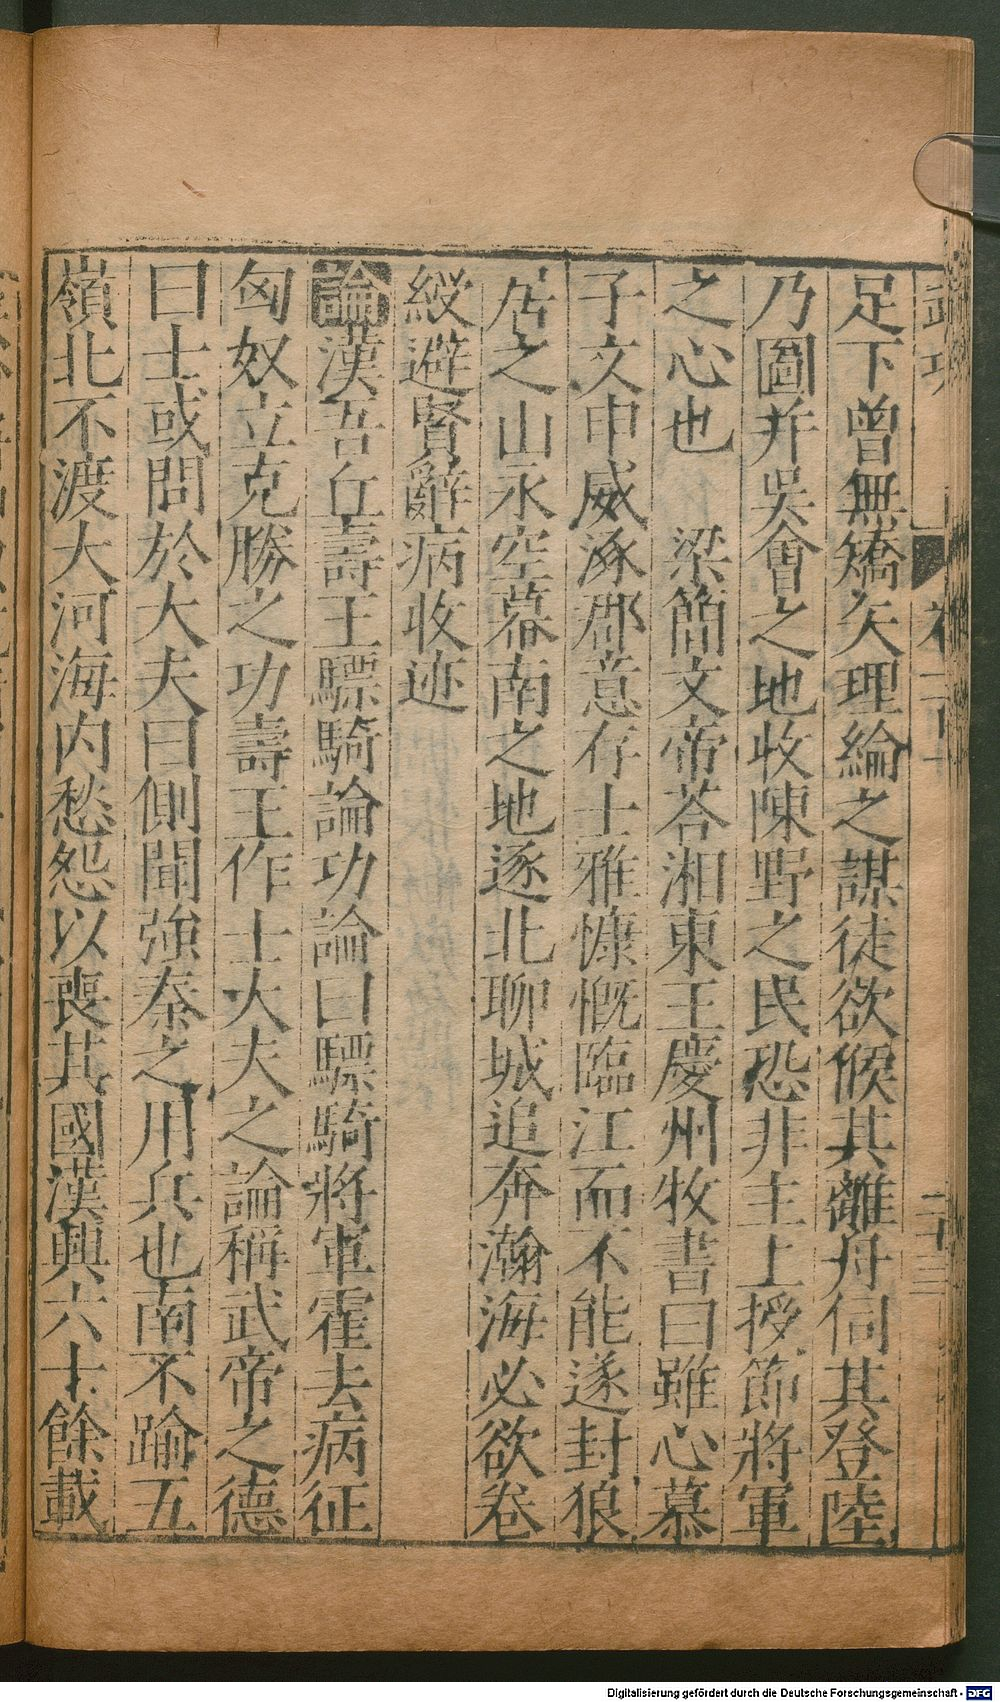 足下曾無矯矢理綸之謀徒欲候其離舟伺其登陸
乃圖并吳會之地收陳野之民恐非主上授節將軍
之心也 梁簡文帝荅湘東王慶州牧書曰雖心慕
子文申威涿郡意存士雅慷慨臨江而不能遂封狼
居之山永空幕南之地逐北聊城追奔瀚海必欲卷
綬避賢辭病收迹
論漢吾丘壽王驃騎論功論曰驃騎將軍霍去病征
匈奴立克勝之功壽王作士大夫之論稱武帝之德
曰士或問於大夫曰側聞強秦之用兵也南不踰五
嶺北不渡大河海內愁怨以喪其國漢興六十餘載
Digitalisierung gefördert durch die Deutsche Forschungsgemeinschaft - DFG